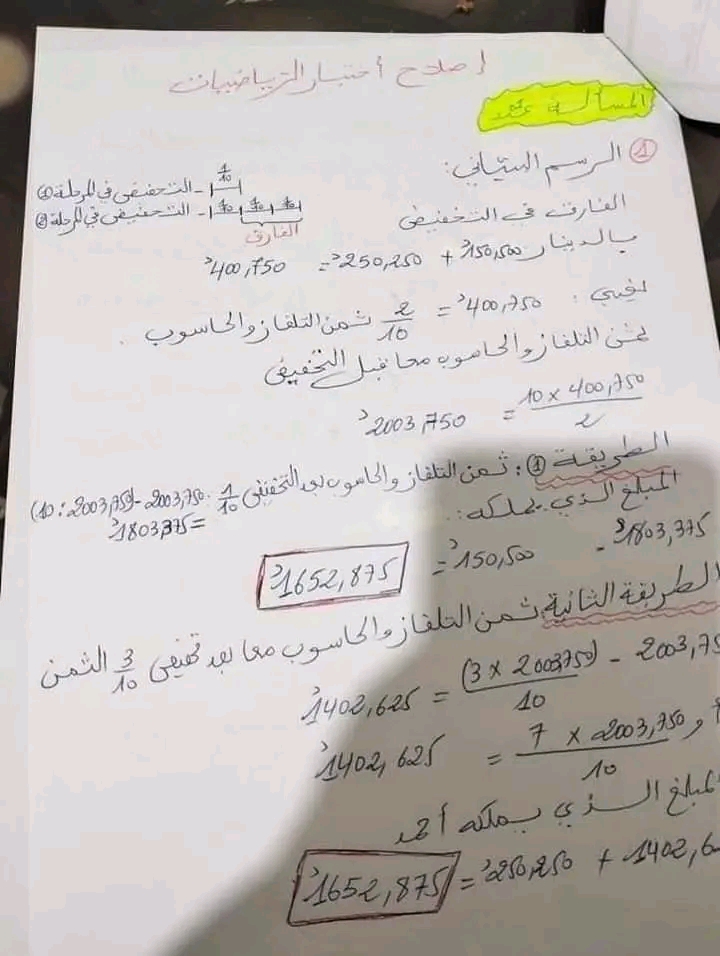 إصلاح اختبار الرياضيات
المسألة عدد
① الرسم البياني:
التخفيض في المرحلة ① - 1/10
التخفيض في المرحلة ② - 1/10 1/10 1/10
الفارق
الفارق في التخفيض
بالدينار 150,500 + 250,250 = 400,750
يعني : 400,750 = 2/10 ثمن التلفاز والحاسوب .
ثمن التلفاز والحاسوب معا قبل التخفيض
10 × 400,750 / 2 = 2003,750
الطريقة ①: ثمن التلفاز والحاسوب بعد التخفيض 1/10 : 2003,750 - (2003,750 : 10)
= 1803,375
المبلغ الذي يملكه :
1803,375 - 150,500 = 1652,875
الطريقة الثانية: ثمن التلفاز والحاسوب معا بعد تخفيض 3/10 الثمن
2003,75 - (3 × 2003,750) / 10 = 1402,625
أو 7 × 2003,750 / 10 = 1402,625
المبلغ الذي يملكه أحمد
1402,6 + 250,250 = 1652,875